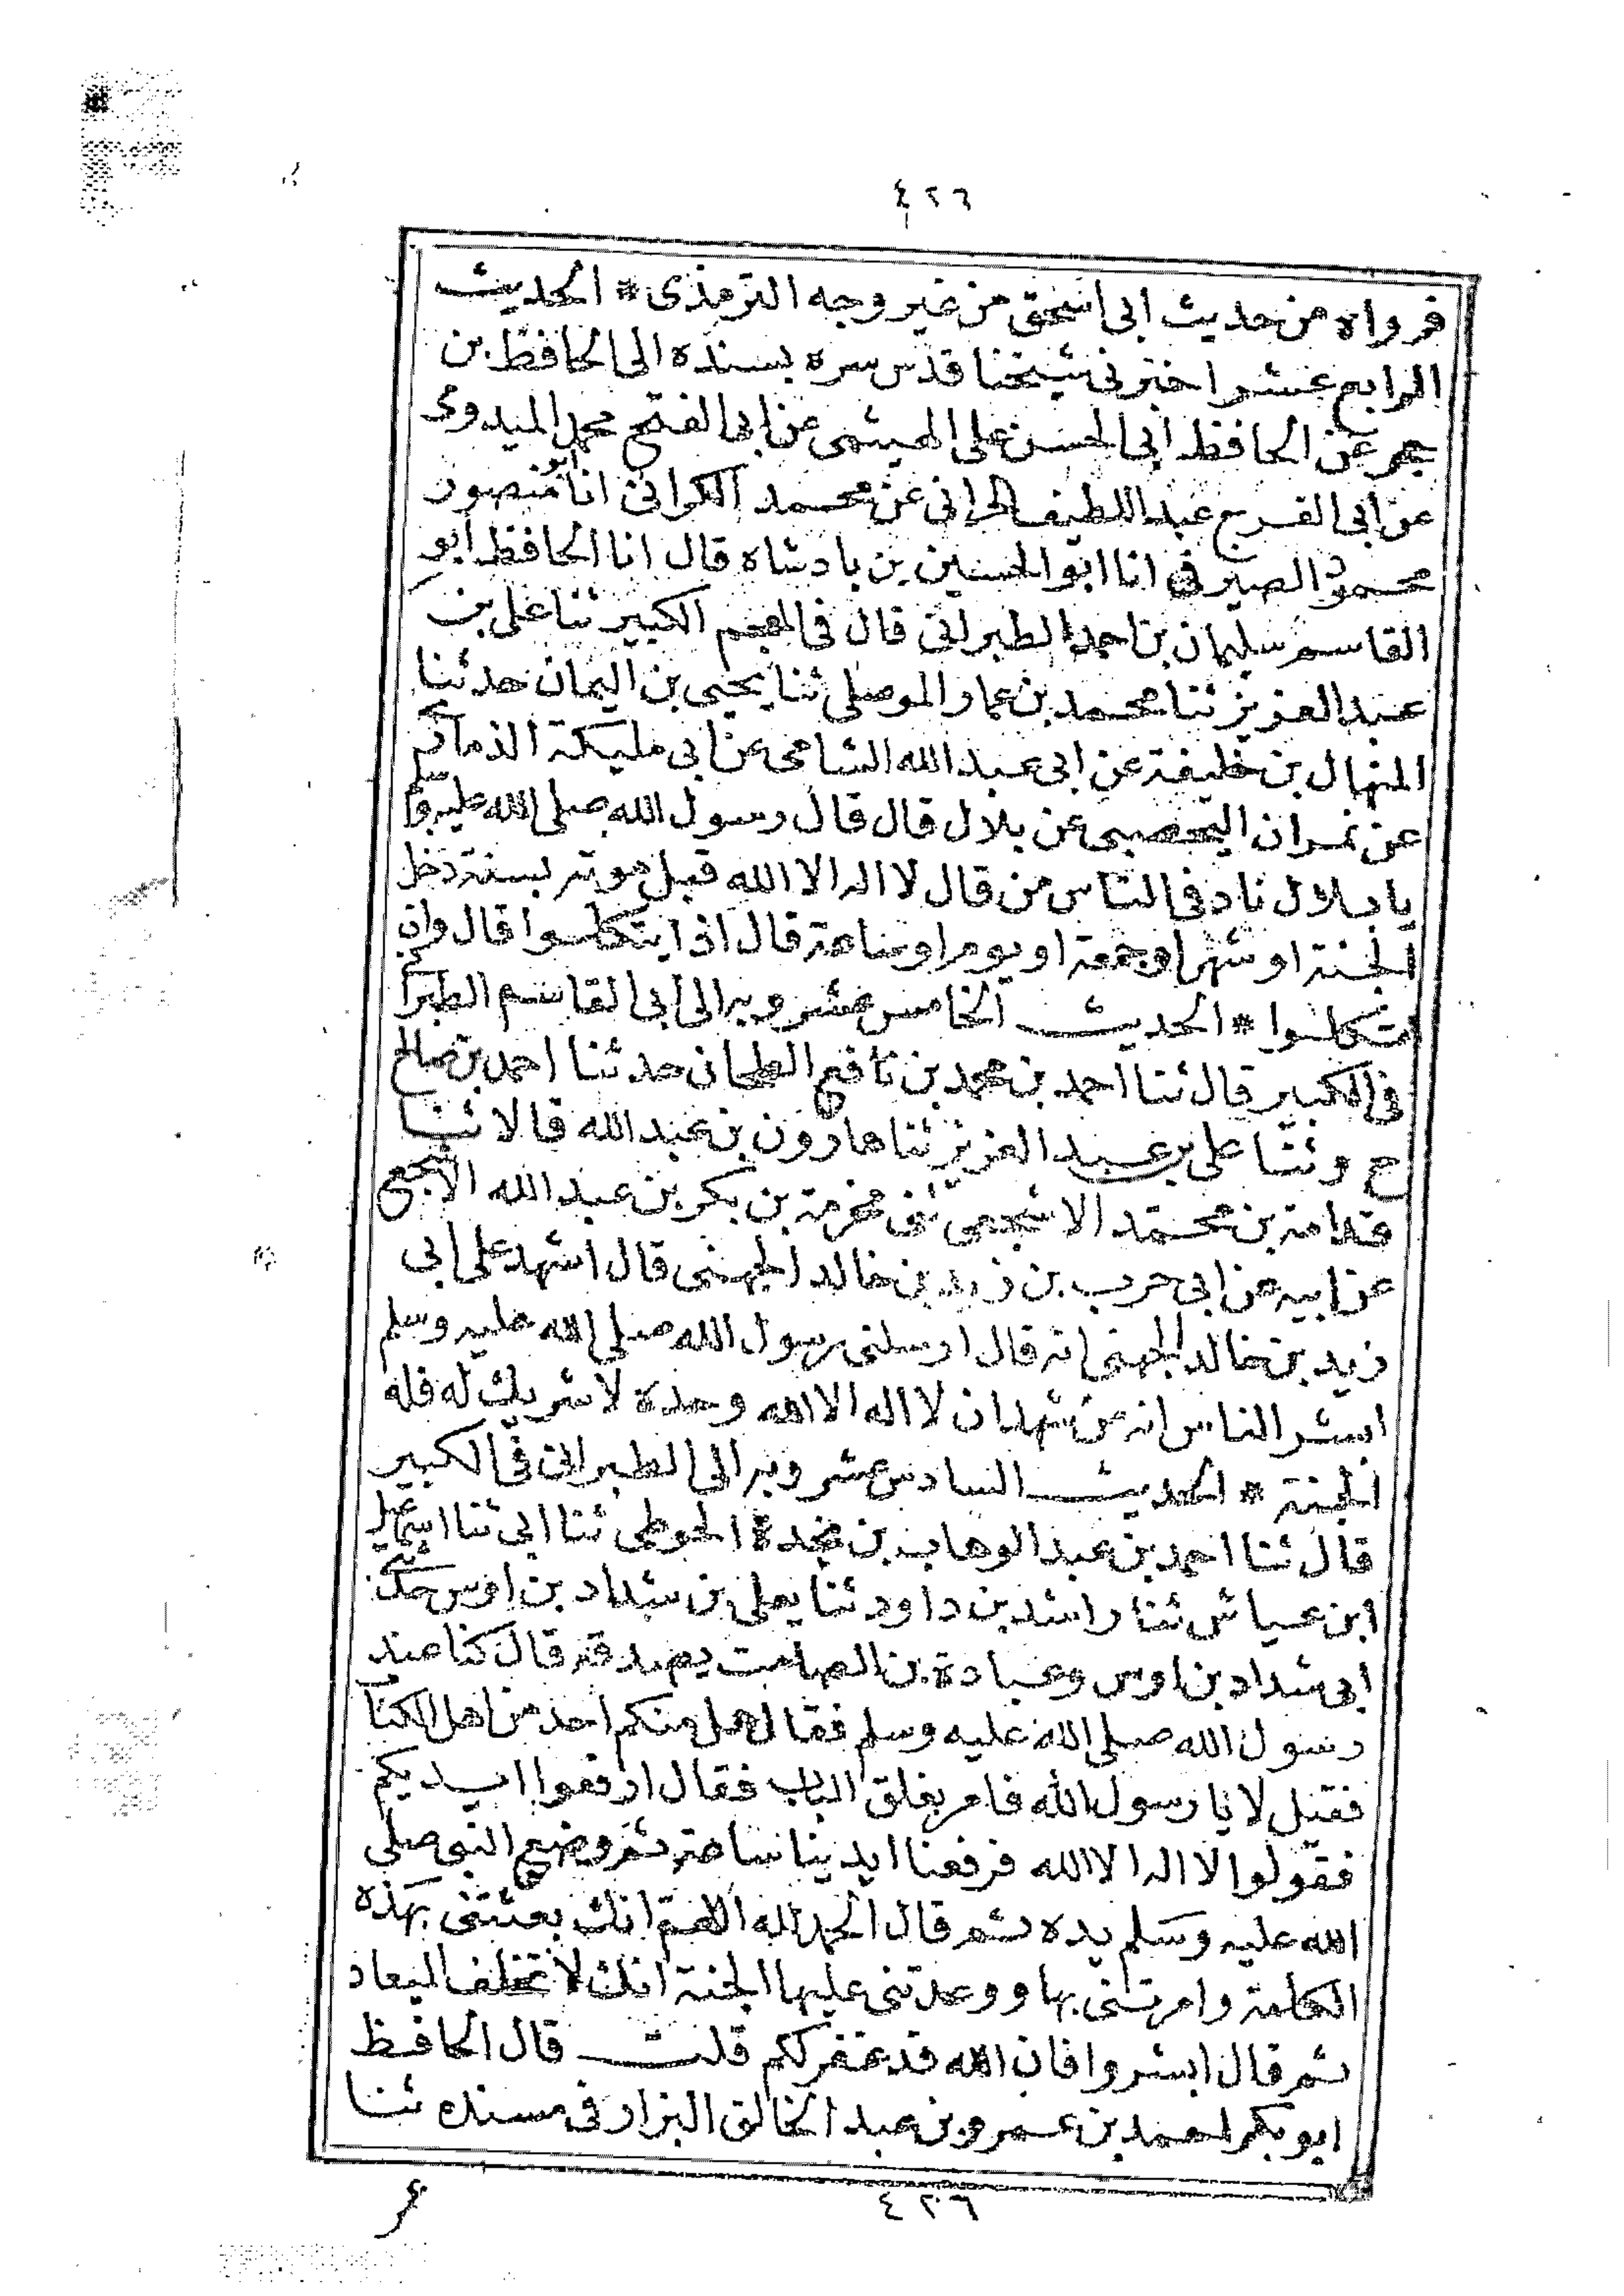 ٤٢٦
فرواه من حديث ابى اسحق من غير وجه الترمذى * الحديث
الرابع عشر اخبرنى شيخنا قدس سره بسنده الى الحافظ بن
حجر عن الحافظ ابى الحسن على الهيثمى عن ابى الفتح محمد الميدومى
عن ابى الفرج عبد اللطيف الحرانى عن محمد الكرانى انا ابو منصور
محمود الصيرفى انا ابو الحسين بن بادشاه قال انا الحافظ ابو
القاسم سليمان بن احمد الطبرانى قال فى المعجم الكبير ثنا على بن
عبد العزيز ثنا محمد بن عمار الموصلى ثنا يحيى بن اليمان حدثنا
المنهال بن خليفة عن ابى عبد الله الشامى عن ابى مليكة الذمارى
عن نمران اليحصبى عن بلال قال قال رسول الله صلى الله عليه و
يا بلال ناد فى الناس من قال لا اله الا الله قبل موته بسنة دخل
الجنة او شهرا وجمعة او يوما وساعة قال اذا يتكلوا قال وان
اتكلوا * الحديث الخامس عشر وبه الى ابى القاسم الطبرانى
فى الكبير قال ثنا احمد بن محمد بن نافع الطحان حدثنا احمد بن صالح
ح وثنا على بن عبد العزيز ثنا هارون بن عبد الله قالا ثنا
قدامة بن محمد الاشجعى ثنى مخرمة بن بكر بن عبد الله الاشجعى
عن ابيه عن ابى حرب بن زيد بن خالد الجهنى قال اشهد على ابى
زيد بن خالد الجهنى انه قال ارسلنى رسول الله صلى الله عليه وسلم
ابشر الناس انه من شهد ان لا اله الا الله وحده لا شريك له فله
الجنة * الحديث السادس عشر وبه الى الطبرانى فى الكبير
قال ثنا احمد بن عبد الوهاب بن نجدة الحوطى ثنا ابى ثنا اسمعيل
ابن عياش ثنا راشد بن داود ثنا يعلى بن شداد بن اوس حدثنى
ابى شداد بن اوس وعبادة بن الصامت يصدقه قال كنا عند
رسول الله صلى الله عليه وسلم فقال هل منكم احد من اهل الكتا
فقيل لا يا رسول الله فامر بغلق الباب فقال ارفعوا ايديكم
فقولوا لا اله الا الله فرفعنا ايدينا ساعة ثم وضع النبى صلى
الله عليه وسلم يده ثم قال الحمد لله اللهم انك بعثتنى بهذه
الكلمة وامرتنى بها ووعدتنى عليها الجنة انك لا تخلف الميعاد
ثم قال ابشروا فان الله قد غفر لكم قلت قال الحافظ
ابو بكر احمد بن عمرو بن عبد الخالق البزار فى مسنده ثنا
٤٢٦